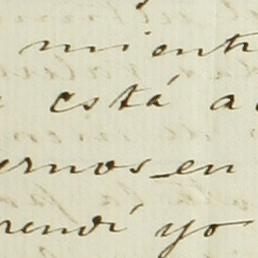 mient
está a
ernos en
rendí yo